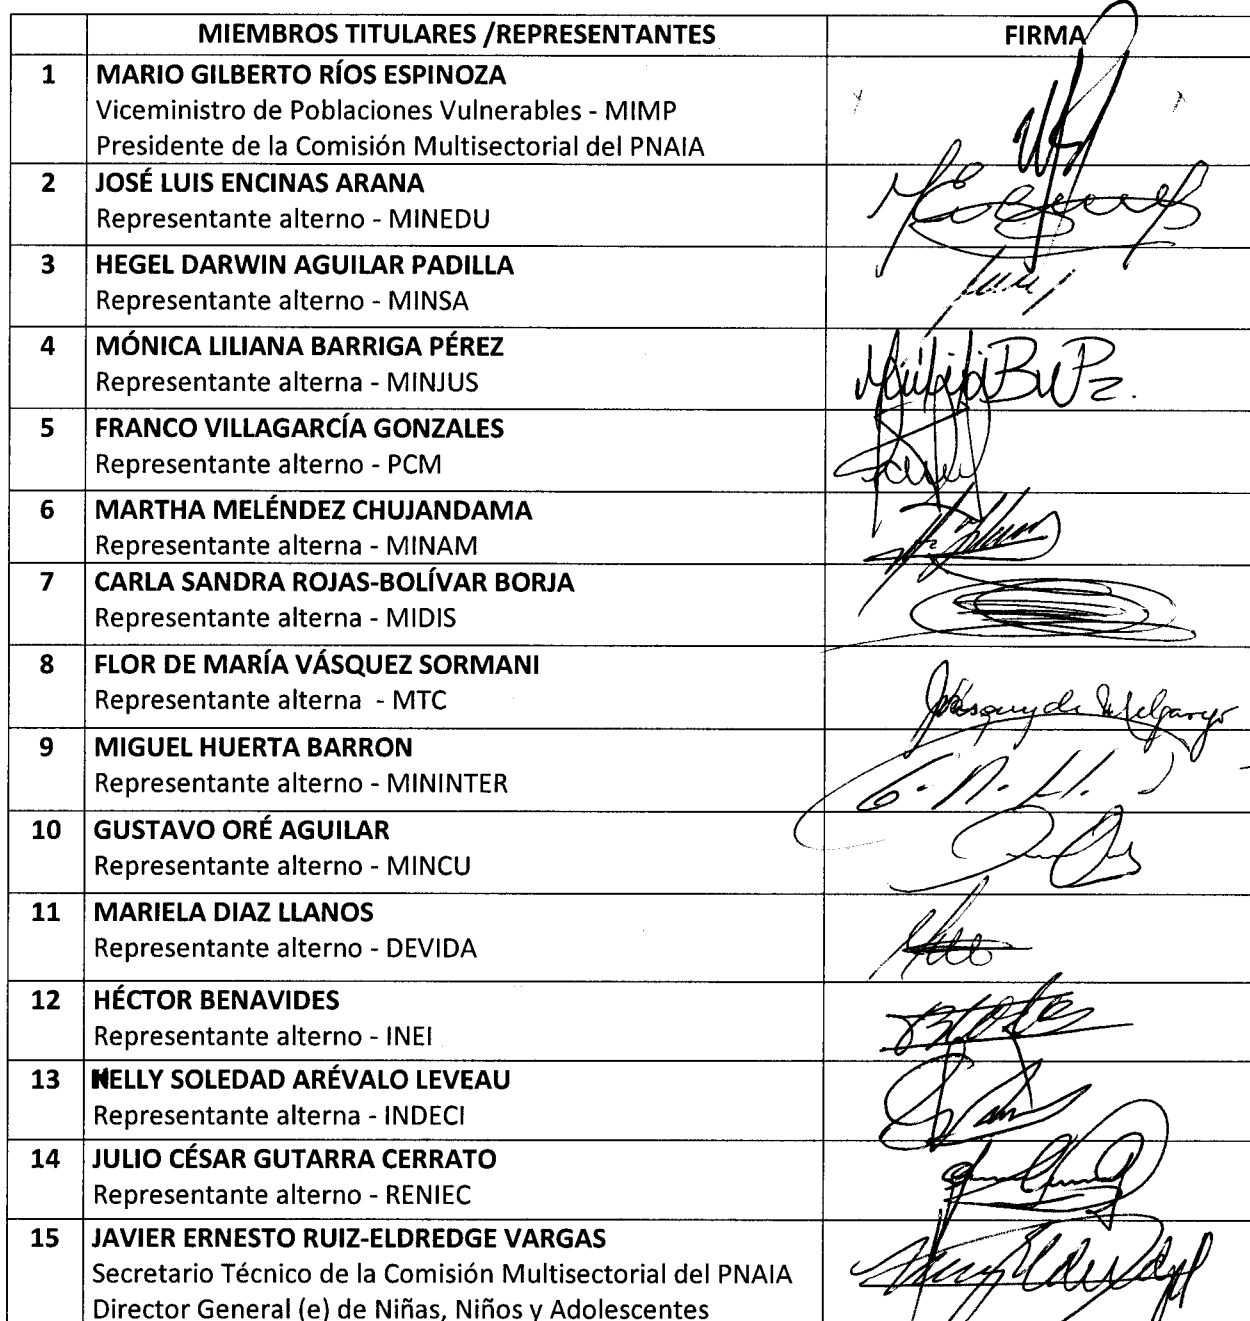 MIEMBROS TITULARES /REPRESENTANTES FIRMA
1 MARIO GILBERTO RÍOS ESPINOZA
Viceministro de Poblaciones Vulnerables - MIMP
Presidente de la Comisión Multisectorial del PNAIA
2 JOSÉ LUIS ENCINAS ARANA
Representante alterno - MINEDU
3 HEGEL DARWIN AGUILAR PADILLA
Representante alterno - MINSA
4 MÓNICA LILIANA BARRIGA PÉREZ
Representante alterna - MINJUS
5 FRANCO VILLAGARCÍA GONZALES
Representante alterno - PCM
6 MARTHA MELÉNDEZ CHUJANDAMA
Representante alterna - MINAM
7 CARLA SANDRA ROJAS-BOLÍVAR BORJA
Representante alterna - MIDIS
8 FLOR DE MARÍA VÁSQUEZ SORMANI
Representante alterna - MTC
9 MIGUEL HUERTA BARRON
Representante alterno - MININTER
10 GUSTAVO ORÉ AGUILAR
Representante alterno - MINCU
11 MARIELA DIAZ LLANOS
Representante alterno - DEVIDA
12 HÉCTOR BENAVIDES
Representante alterno - INEI
13 NELLY SOLEDAD ARÉVALO LEVEAU
Representante alterna - INDECI
14 JULIO CÉSAR GUTARRA CERRATO
Representante alterno - RENIEC
15 JAVIER ERNESTO RUIZ-ELDREDGE VARGAS
Secretario Técnico de la Comisión Multisectorial del PNAIA
Director General (e) de Niñas, Niños y Adolescentes